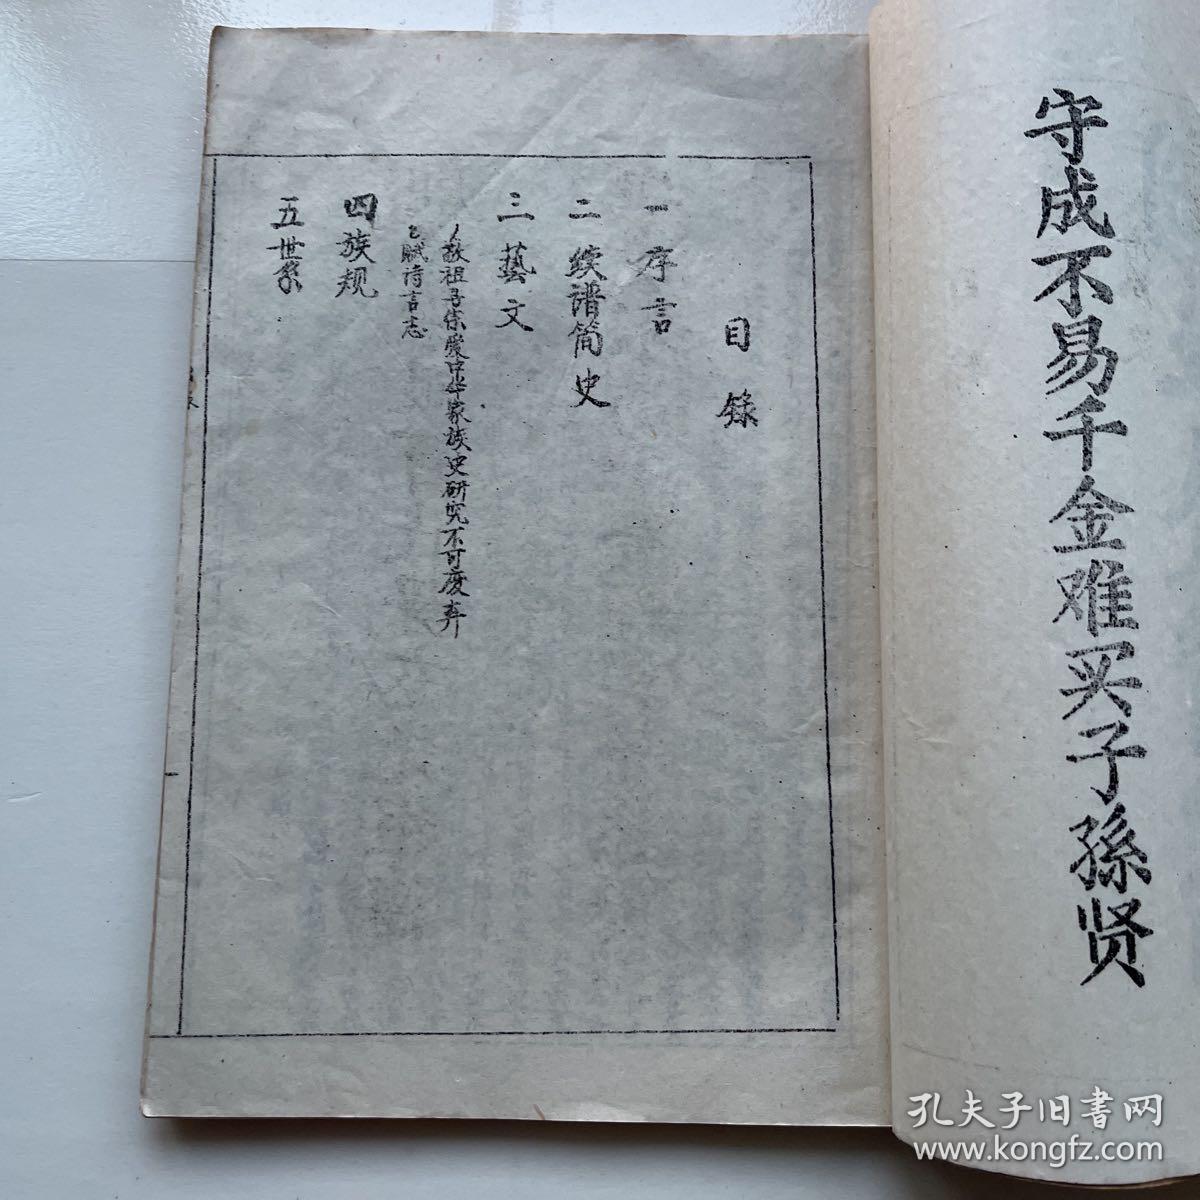 守成不易千金难买子孫贤
目录
一序言
二续谱简史
三藝文
1敬祖寻宗爱中华家族史研究不可废弃
2赋诗言志
四族规
五世系
孔夫子旧書网
www.kongfz.com